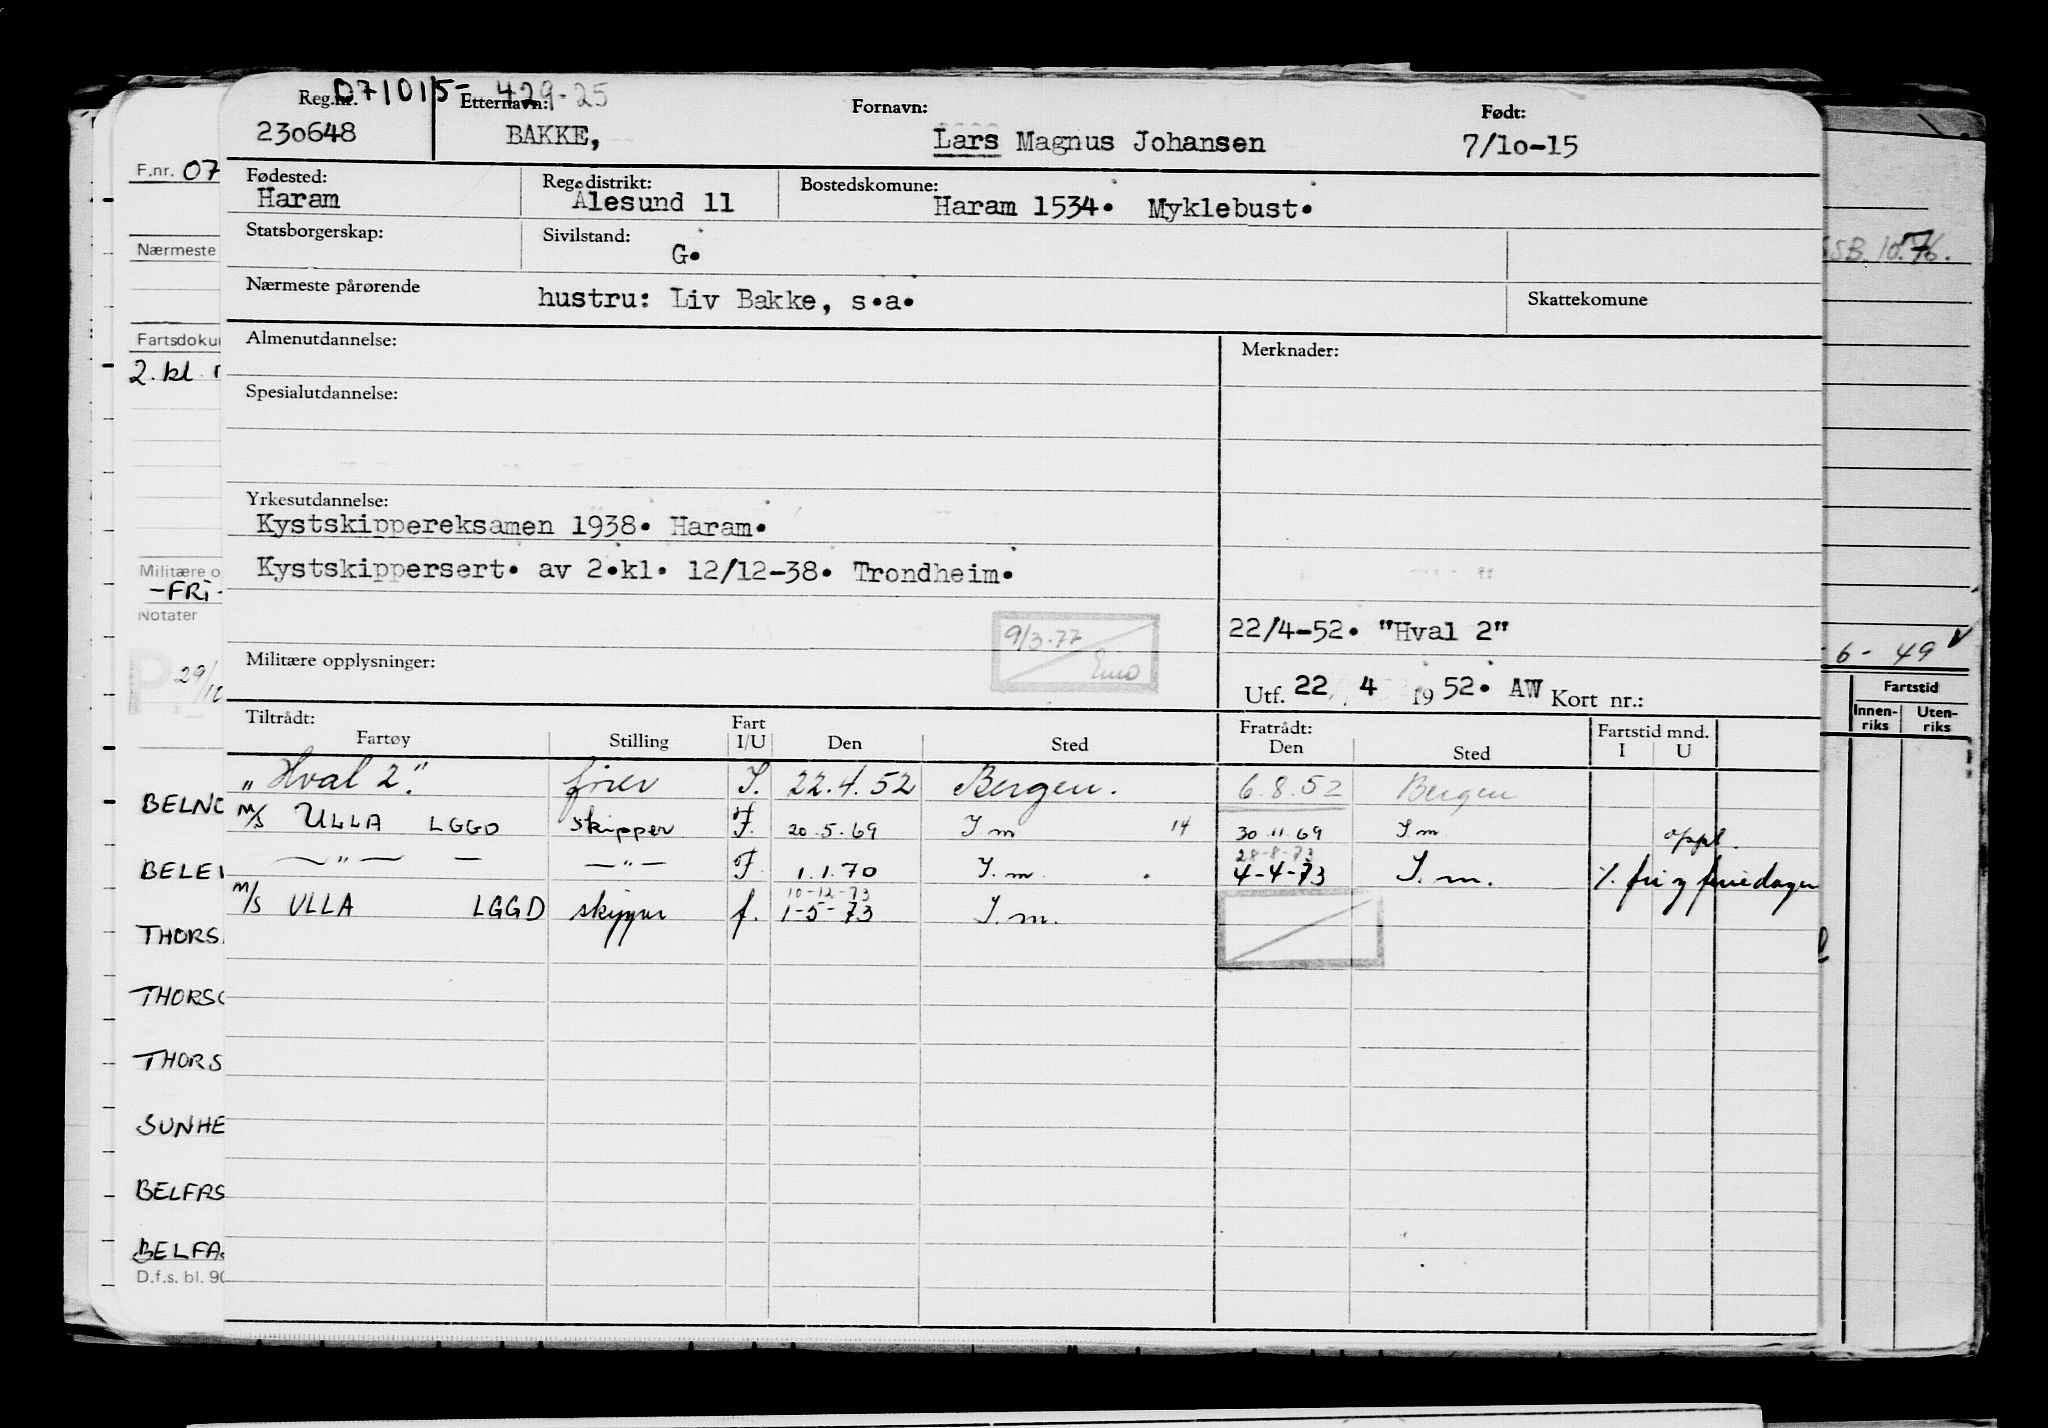 071015- 429-25
Reg.nr. Etternavn: Fornavn: Født:
230648 BAKKE, Lars Magnus Johansen 7/10-15
Fødested: Reg.distrikt: Bostedskomune:
Haram Ålesund 11 Haram 1534. Myklebust.
Statsborgerskap: Sivilstand:
G.
Nærmeste pårørende hustru: Liv Bakke, s.a. Skattekomune
Almenutdannelse: Merknader:
Spesialutdannelse:
Yrkesutdannelse:
Kystskippereksamen 1938. Haram.
Kystskippersert. av 2.kl. 12/12-38. Trondheim.
9/3-77
22/4-52. "Hval 2"
Militære opplysninger:
Utf. 22 4 19 52. AW Kort nr.:
Tiltrådt: Fart Fratrådt: Fartstid mnd.
Fartøy Stilling I/U Den Sted Den Sted I U
"Hval 2". fører I. 22.4.52 Bergen. 6.8.52 Bergen
M/S ULLA LGGD skipper F. 20.5.69 I m 14 30.11.69 I m oppl.
— " — — — " — F. 1.1.70 I. m. 28-8-73 4-4-73 I. m. %. fri og feriedager
M/S ULLA LGGD skipper f. 10-12-73 1-5-73 I. m.
F.nr. 07
Nærmeste
Fartsdoku
2. kl
Militære o
-FRI-
Notater
P
29/10
BELNO
BELE
THORS
THORSO
THORS
SUNHE
BELFAS
BELFAS
D.f.s. bl. 90
SSB. 10.76.
6 - 49 v
Fartstid
Innen-riks Uten-riks